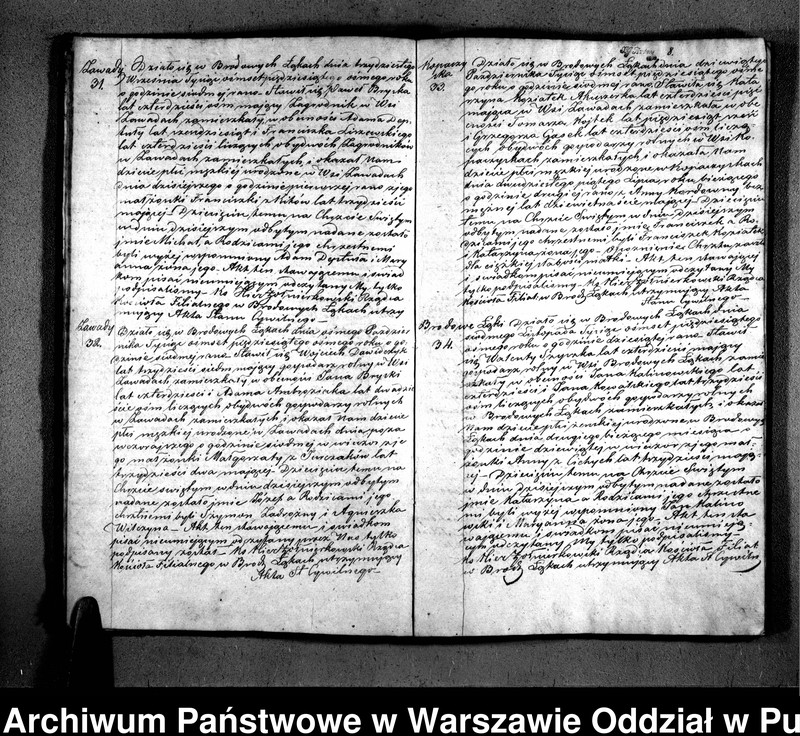 Zawady
31.
Działo się w Brodowych Łąkach dnia trzydziestego
Września Tysiąc ośmset pięćdziesiątego ósmego roku
o godzinie siódmej rano. Stawił się Paweł Bryśka
lat czterdzieści ośm mający Zagrodnik w Wsi
Zawadach zamieszkały w obecności Adama Dep-
tuły lat trzydzieści i Franciszka
lat czterdzieści liczących obydwóch Zagrodników
w Zawadach zamieszkałych i okazał Nam
dziecie płci męzkiej urodzone w Wsi Zawadach
dnia dzisiejszego o godzinie pierwszej rano z jego
małżonki Franciszki z Ników lat trzydzieści
mającej. Dziecięciu temu na Chrzcie Świętym
w dniu dzisiejszym odbytym nadane zostało
jmie Michał a Rodzicami jego chrzestnemi
byli wyżej wspomniony Adam Deptuła i Mary-
anna żona jego. Akt ten stawającemu i świad-
kom pisać nieumiejącym odczytany My tylko
podpisaliśmy. Ks Kierzołmierkowski Rządca
Kościoła Filialnego w Brodowych Łąkach utrzy
mujący Akta Stanu Cywilnego
Zawady
32.
Działo się w Brodowych Łąkach dnia ósmego Paździer
nika Tysiąc ośmset pięćdziesiątego ósmego roku o go
dzinie siódmej rano. Stawił się Wojciech Dawidczyk
lat trzydzieści siedm mający gospodarz rolny w Wsi
Zawadach zamieszkały w obecności Jana Bryśki
lat czterdzieści i Adama Ambroziaka lat dwadzie
ścia ośm liczących obydwóch gospodarzy rolnych
w Zawadach zamieszkałych i okazał Nam dziecie
płci męzkiej urodzone w Zawadach dnia
wczorajszego o godzinie siódmej w wieczór z je
go małżonki Małgorzaty z lat
trzydzieści dwa mającej. Dziecięciu temu na
Chrzcie świętym w dniu dzisiejszym odbytym
nadane zostało jmie Józef a Rodzicami jego
chrzestnemi byli Szymon Zadrożny i Agnieszka
Wilczyna. Akt ten stawającemu i świadkom
pisać nieumiejącym odczytany przez Nas tylko
podpisany został. Ks Kierzołmierkowski Rządca
Kościoła Filialnego w Brod Łąkach utrzymujący
Akta St Cywilnego
8.
33.
Działo się w Brodowych Łąkach dnia dziewiątego
Października Tysiąc ośmset pięćdziesiątego ósme
go roku o godzinie siódmej rano. Stawiła się Kata
rzyna Księżak Akuszerka lat czterdzieści pięć
mająca w Wsi Zawadach zamieszkała w obe
cności Tomasza Wojtek lat pięćdziesiąt sześć
i Grzegorza Gasek lat czterdzieści ośm liczą
cych obydwóch gospodarzy rolnych w Wsi Ko
paczyskach zamieszkałych i okazała Nam
dziecie płci męzkiej urodzone w Kopaczyskach
dnia dwudziestego piątego Lipca roku bieżącego
o godzinie drugiej rano z Anny bez
mężnej lat dziewiętnaście mającej. Dziecięciu
temu na Chrzcie Świętym w dniu dzisiejszym
odbytym nadane zostało jmie Franciszek a Ro
dzicami jego chrzestnemi byli Franciszek Księżak
i Katarzyna żona jego. Opóźnienie Chrztu zaszło
dla ciężkiej słabości matki. Akt ten stawającej
i świadkom pisać nieumiejącym odczytany My
tylko podpisaliśmy. Ks Kierzołmierkowski Rządca
Kościoła Filial w Brod Łąkach utrzymujący Akta
Stanu Cywilnego
Brodowe Łąki
34.
Działo się w Brodowych Łąkach dnia
siódmego Listopada Tysiąc ośmset pięćdziesiątego
ósmego roku o godzinie dziesiątej rano. Stawił
się Walenty Szyszka lat czterdzieści mający
gospodarz rolny w Wsi Brodowych Łąkach zamie
szkały w obecności Jana Kalinowskiego lat
czterdzieści i Jana Kowalskiego lat trzydzieści
ośm liczących obydwóch gospodarzy rolnych
w Brodowych Łąkach zamieszkałych i okazał
Nam dziecie płci żeńskiej urodzone w Brodowych
Łąkach dnia drugiego bieżącego miesiąca o
godzinie dziewiątej wieczorem z jego mał
żonki Anny z Cichych lat trzydzieści mają
cej. Dziecięciu temu na Chrzcie Świętym
w dniu dzisiejszym odbytym nadane zostało
jmie Katarzyna a Rodzicami jego Chrzestne
mi byli wyżej wspomniony Jan Kalino
wski i Maryanna żona jego. Akt ten sta
wającemu i świadkom pisać nieumieją
cym odczytany My tylko podpisaliśmy
Ks Kierzołmierkowski Rządca Kościoła Filial
w Brod Łąkach utrzymujący Akta St Cywiln
Archiwum Państwowe w Warszawie Oddział w Pu